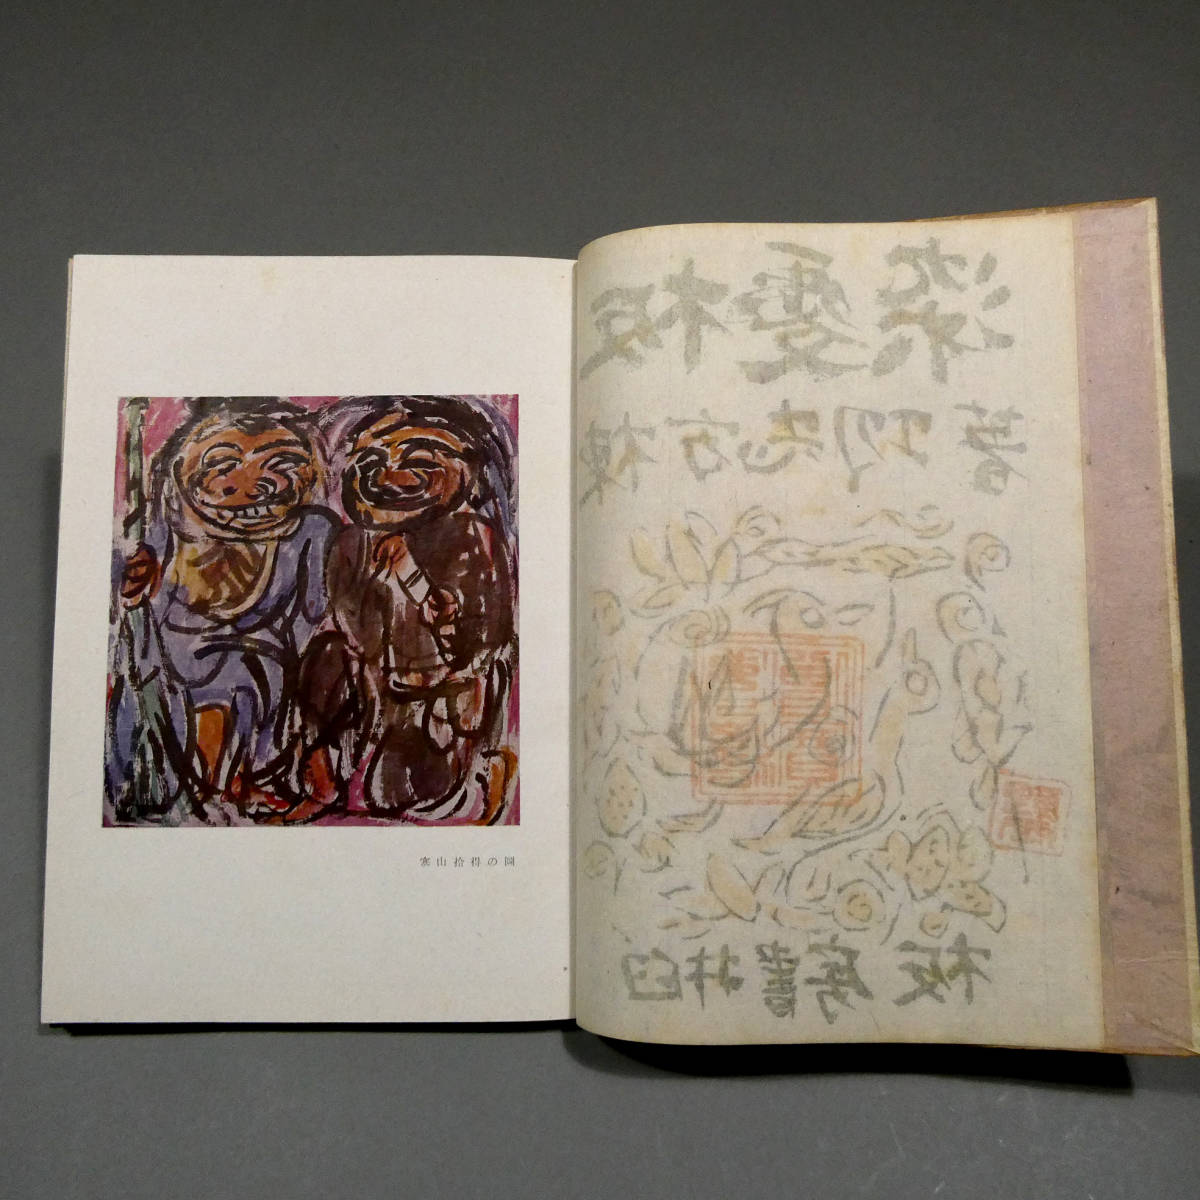 寒山拾得の圖
板愛染
棟方志功著
臼井書房板